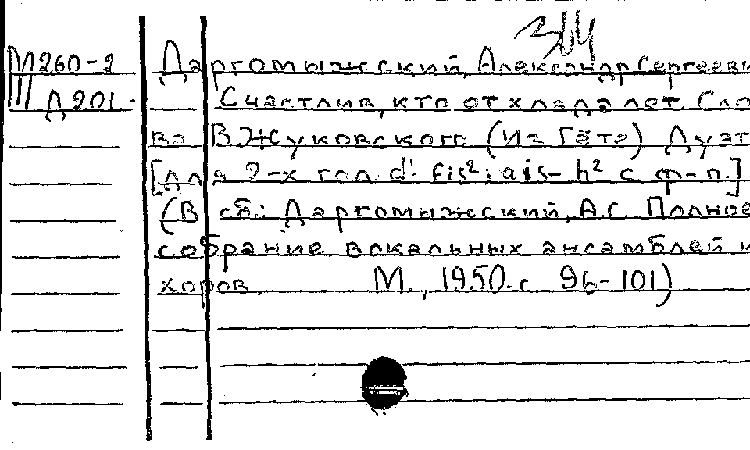 314
М260-2 Даргомыжский, Александр Сергеевич
III Д201. Счастлив, кто от хлада лет. Сло
ва В. Жуковского (Из Гёте) Дуэт
[для 2-х гол. d': fis²; ais-h² с ф-п.]
(В сб.: Даргомыжский, А.С. Полное
собрание вокальных ансамблей и
хоров М., 1950. с 96-101)